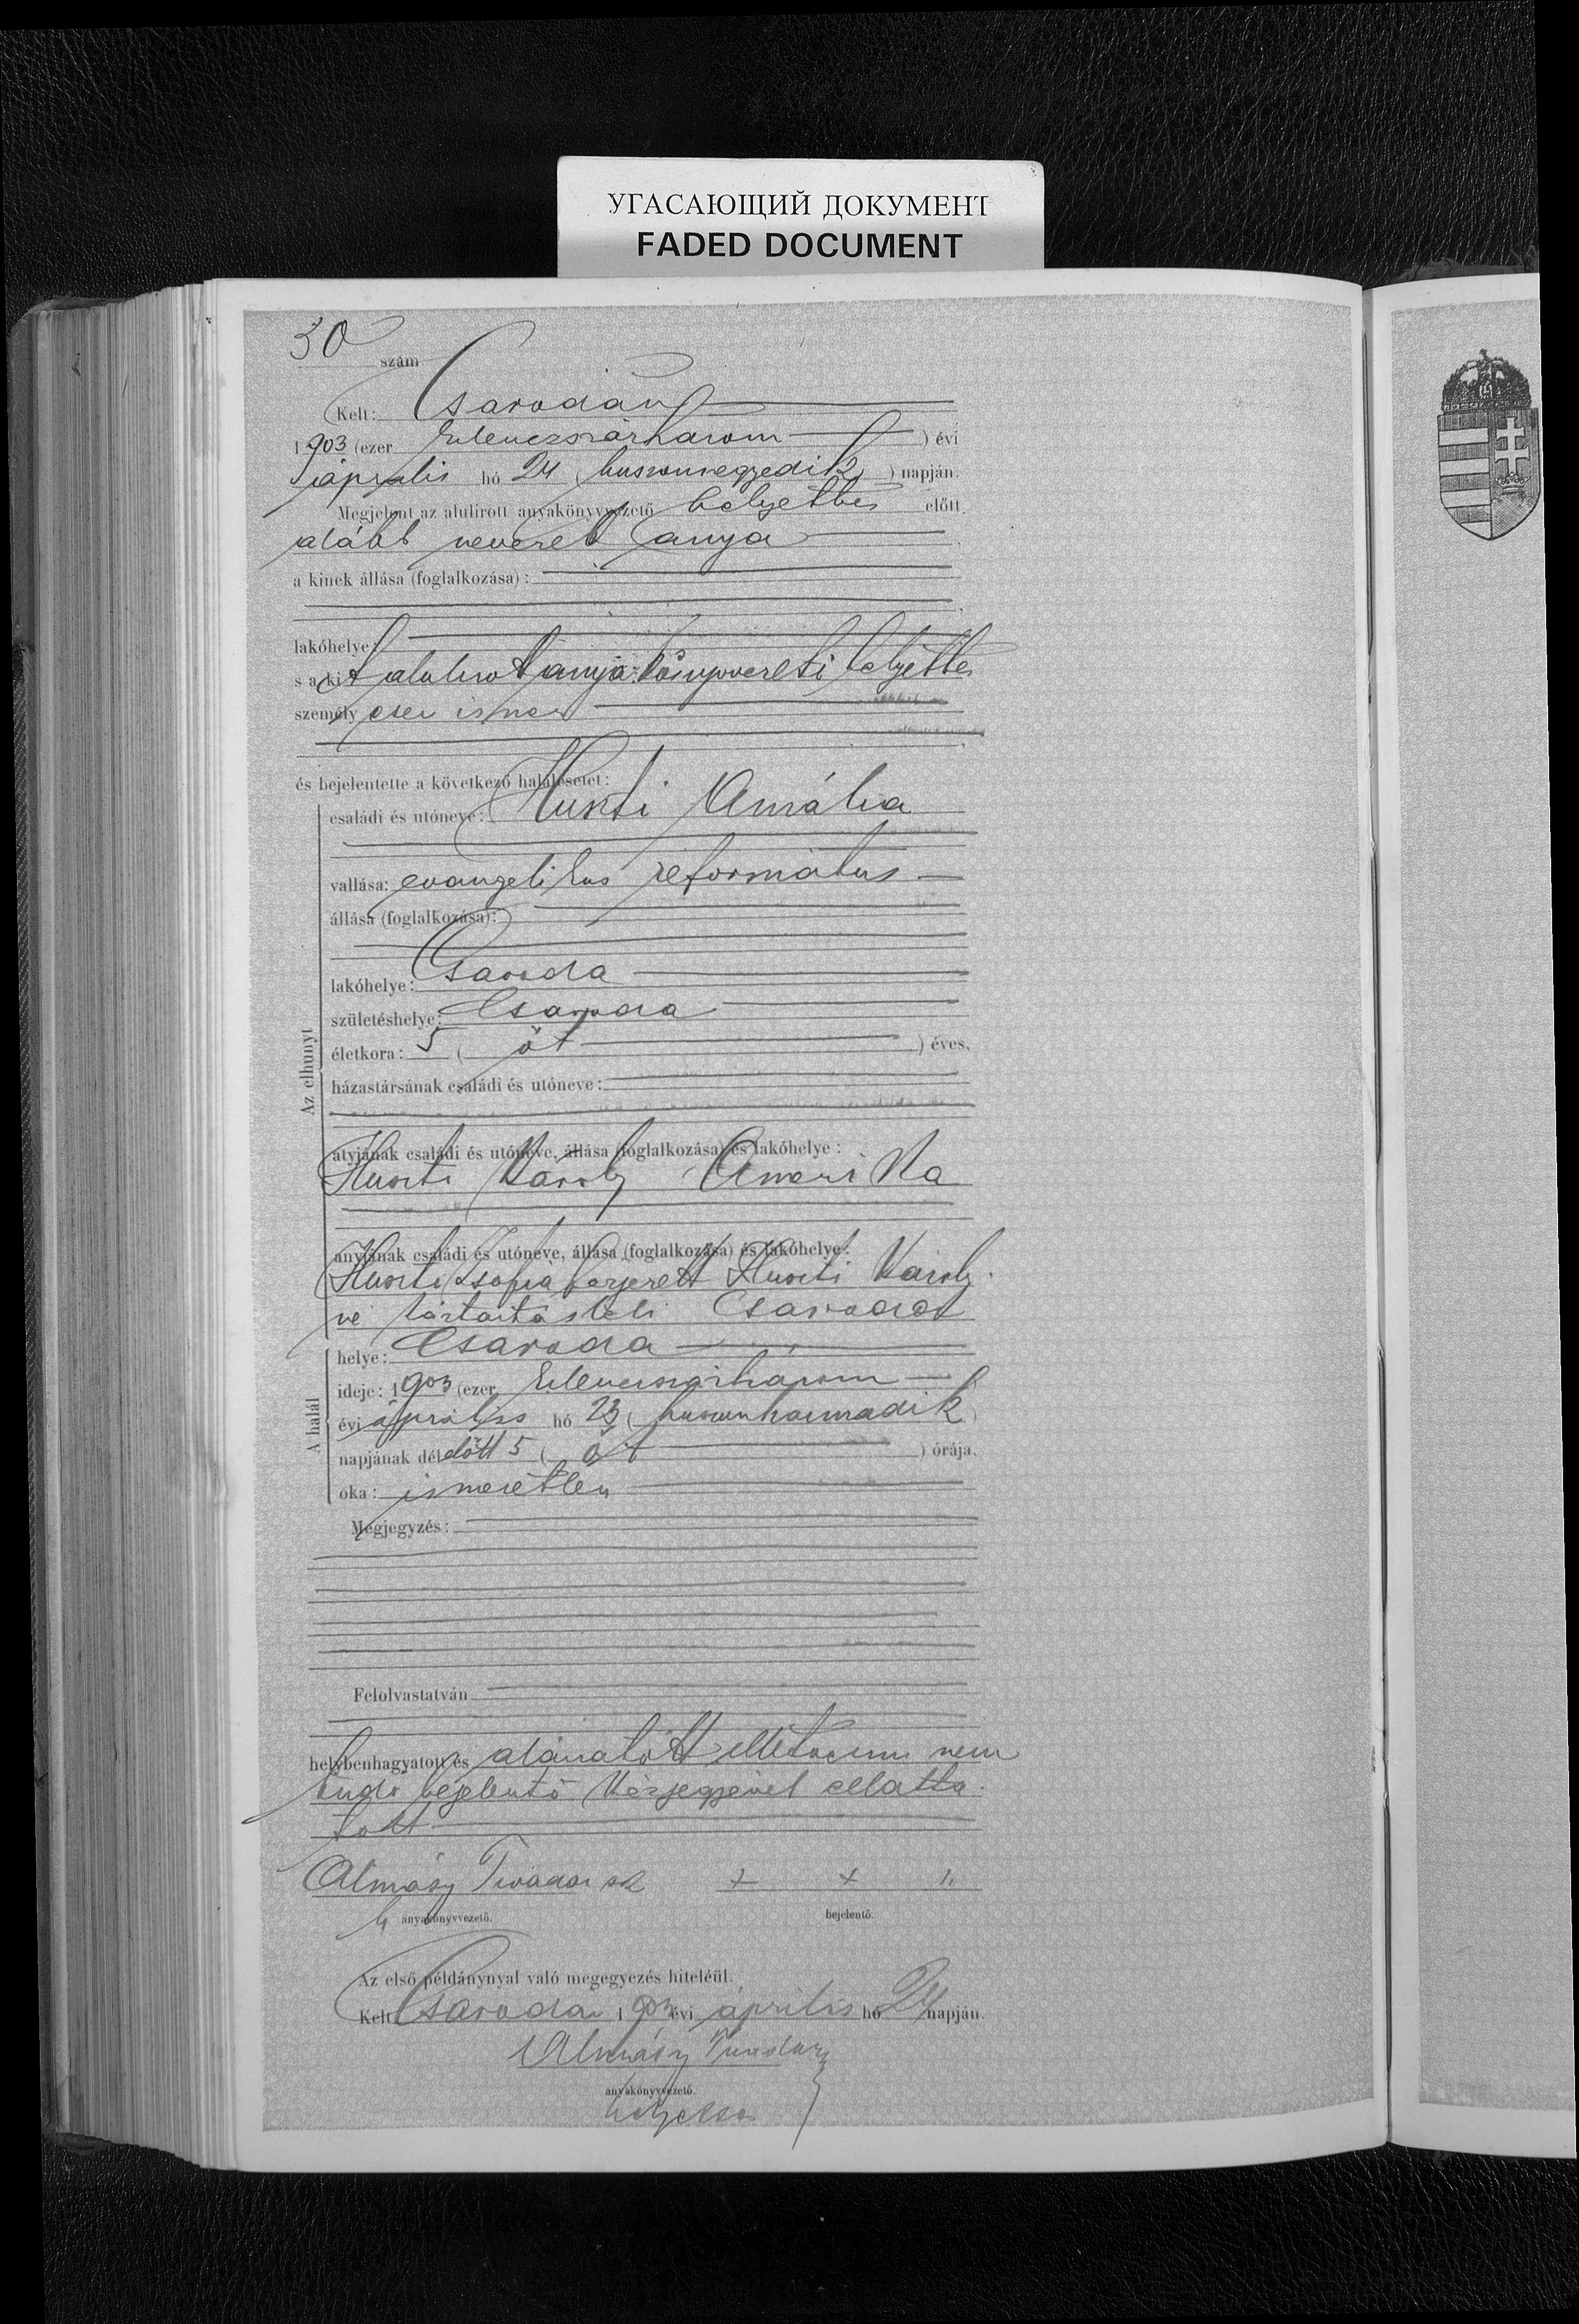 УГАСАЮЩИЙ ДОКУМЕНТ
FADED DOCUMENT
30 szám
Kelt: Csarodán
1903 (ezer kilenczszázhárom ) évi
április hó 24 (huszonnegyedik ) napján.
Megjelent az alulirott anyakönyvvezető helyettes előtt
alább nevezett anya
a kinek állása (foglalkozása):
lakóhelye:
s a kit alulirot anyakönyvvezeti helyettes
személyesen ismer
és bejelentette a következő halálesetet:
Az elhunyt
családi és utóneve: Huszti Amália
vallása: evangelikus református
állása (foglalkozása):
lakóhelye: Csaroda
születéshelye: Csaroda
életkora: 5 ( öt ) éves.
házastársának családi és utóneve:
atyjának családi és utóneve, állása (foglalkozása) és lakóhelye:
Huszti Károly Amerika
anyjának családi és utóneve, állása (foglalkozása) és lakóhelye:
Huszti Zsófia férjezett Huszti Károly
né háztartásbeli Csaroda
A halál
helye: Csaroda
ideje: 1903 (ezer kilenczszázhárom
évi április hó 23 (huszonharmadik )
napjának délelőtt 5 ( öt ) órája.
oka: ismeretlen
Megjegyzés:
Felolvastatván
helybenhagyatott és aláiratott illetve irni nem
tudó bejelentő kézjegyével ellátta
tott
Almásy Tivadar sk + + "
h anyakönyvvezető. bejelentő.
Az első példánynyal való megegyezés hiteléül.
Kelt Csarodán 1903 évi április hó 24 napján.
Almásy Tivadar
anyakönyvvezető
helyettes